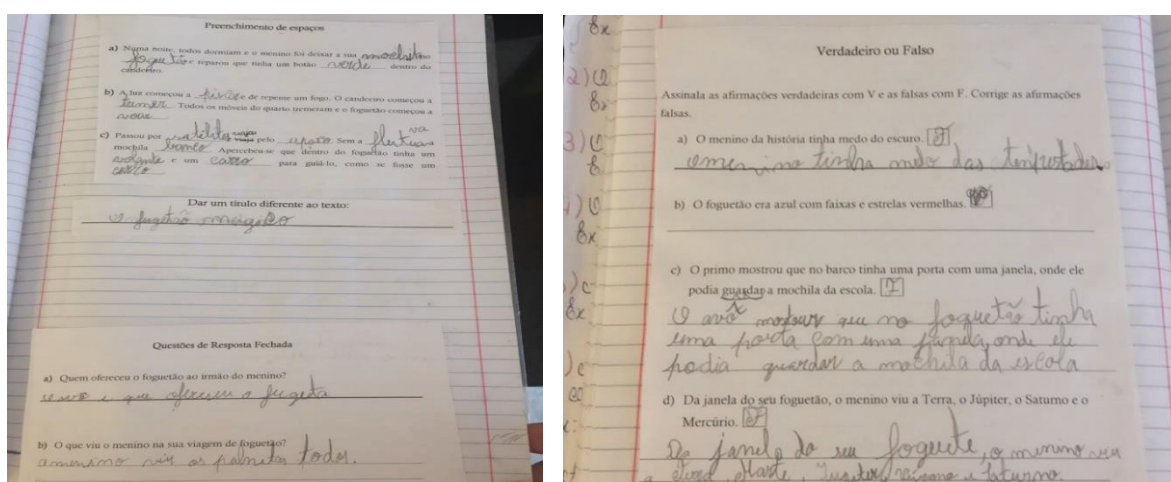 Preenchimento de espaços
a) Numa noite, todos dormiam e o menino foi deixar a sua mochila no
foguetão e reparou que tinha um botão verde dentro do
candeeiro.
b) A luz começou a piscar e de repente um fogo. O candeeiro começou a
tremer. Todos os móveis do quarto tremeram e o foguetão começou a
voar.
c) Passou por satélites pelo espaço. Sem a flutuava
mochila branco. Apercebeu-se que dentro do foguetão tinha um
volante e um carro para guiá-lo, como se fosse um
carro
Dar um título diferente ao texto:
O fugetão magico
Questões de Resposta Fechada
a) Quem ofereceu o foguetão ao irmão do menino?
o avô e que ofereceu o fugeta
b) O que viu o menino na sua viagem de foguetão?
o menino viu os palnetas todos.
Ex
2) Q
Ex
3) Q
Ex
Verdadeiro ou Falso
Assinala as afirmações verdadeiras com V e as falsas com F. Corrige as afirmações
falsas.
a) O menino da história tinha medo do escuro. F
O menino tinha medo das tenpestades
b) O foguetão era azul com faixas e estrelas vermelhas.
c) O primo mostrou que no barco tinha uma porta com uma janela, onde ele
podia guardar a mochila da escola. F
O avô que no foguetão tinha
uma porta com uma janela, onde ele
podia guardar a mochila da escola
d) Da janela do seu foguetão, o menino viu a Terra, o Júpiter, o Saturno e o
Mercúrio. F
Da janela do seu foguete, o menino viu
a Terra, Marte, Jupiter, e Saturno.